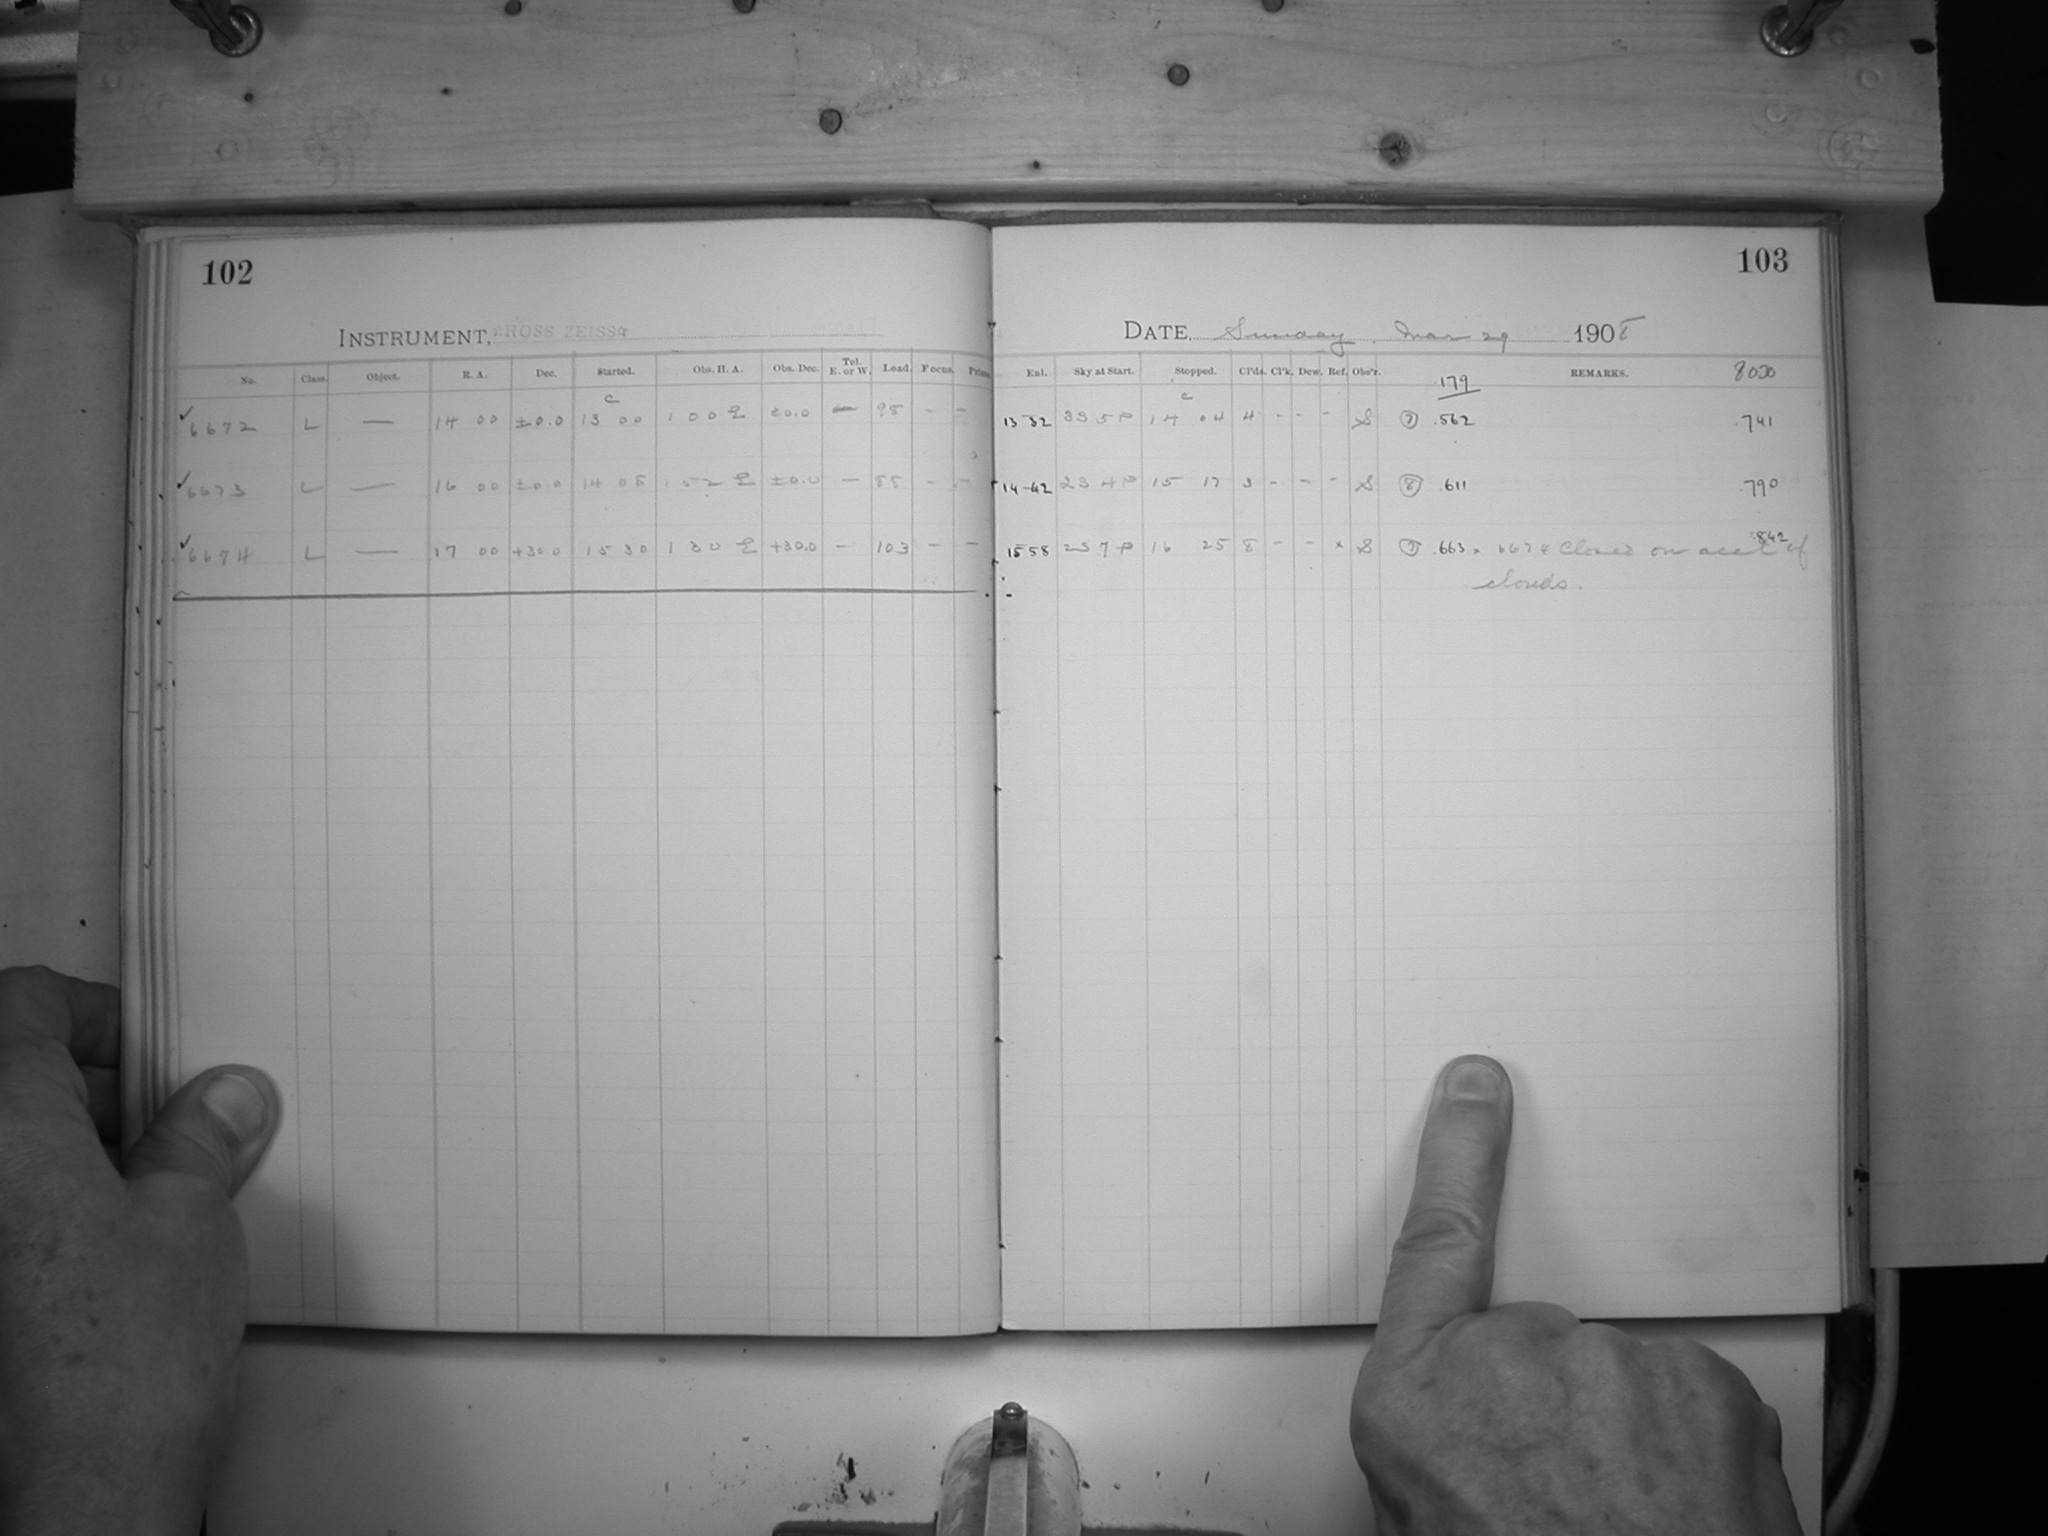 102
INSTRUMENT, ROSS ZEISS
No. Class. Object. R. A. Dec. Started. Obs. H. A. Obs. Dec. Tel. E. or W. Load. Focus.
c
✓6672 L — 14 00 ±0.0 13 00 1 00 E ±0.0 — 98 - -
✓6673 L — 16 00 ±0.0 14 08 1 52 E ±0.0 — 88 - -
✓6674 L — 17 00 +30.0 15 30 1 30 E +30.0 - 103 - -
103
DATE, Sunday, Mar 29 1908
Exl. Sky at Start. Stopped. Cl'ds. Cl'k. Dew. Ref. Obs'r. REMARKS. 8020
.179
c
13 32 3S 5P 14 04 4 - - - S 7 .562 .741
14-42 2S 4P 15 17 3 - - - S 8 .611 .790
15 58 2S 7P 16 25 8 - - x S 7 .663 x 6674 Closed on acct of .842
clouds.